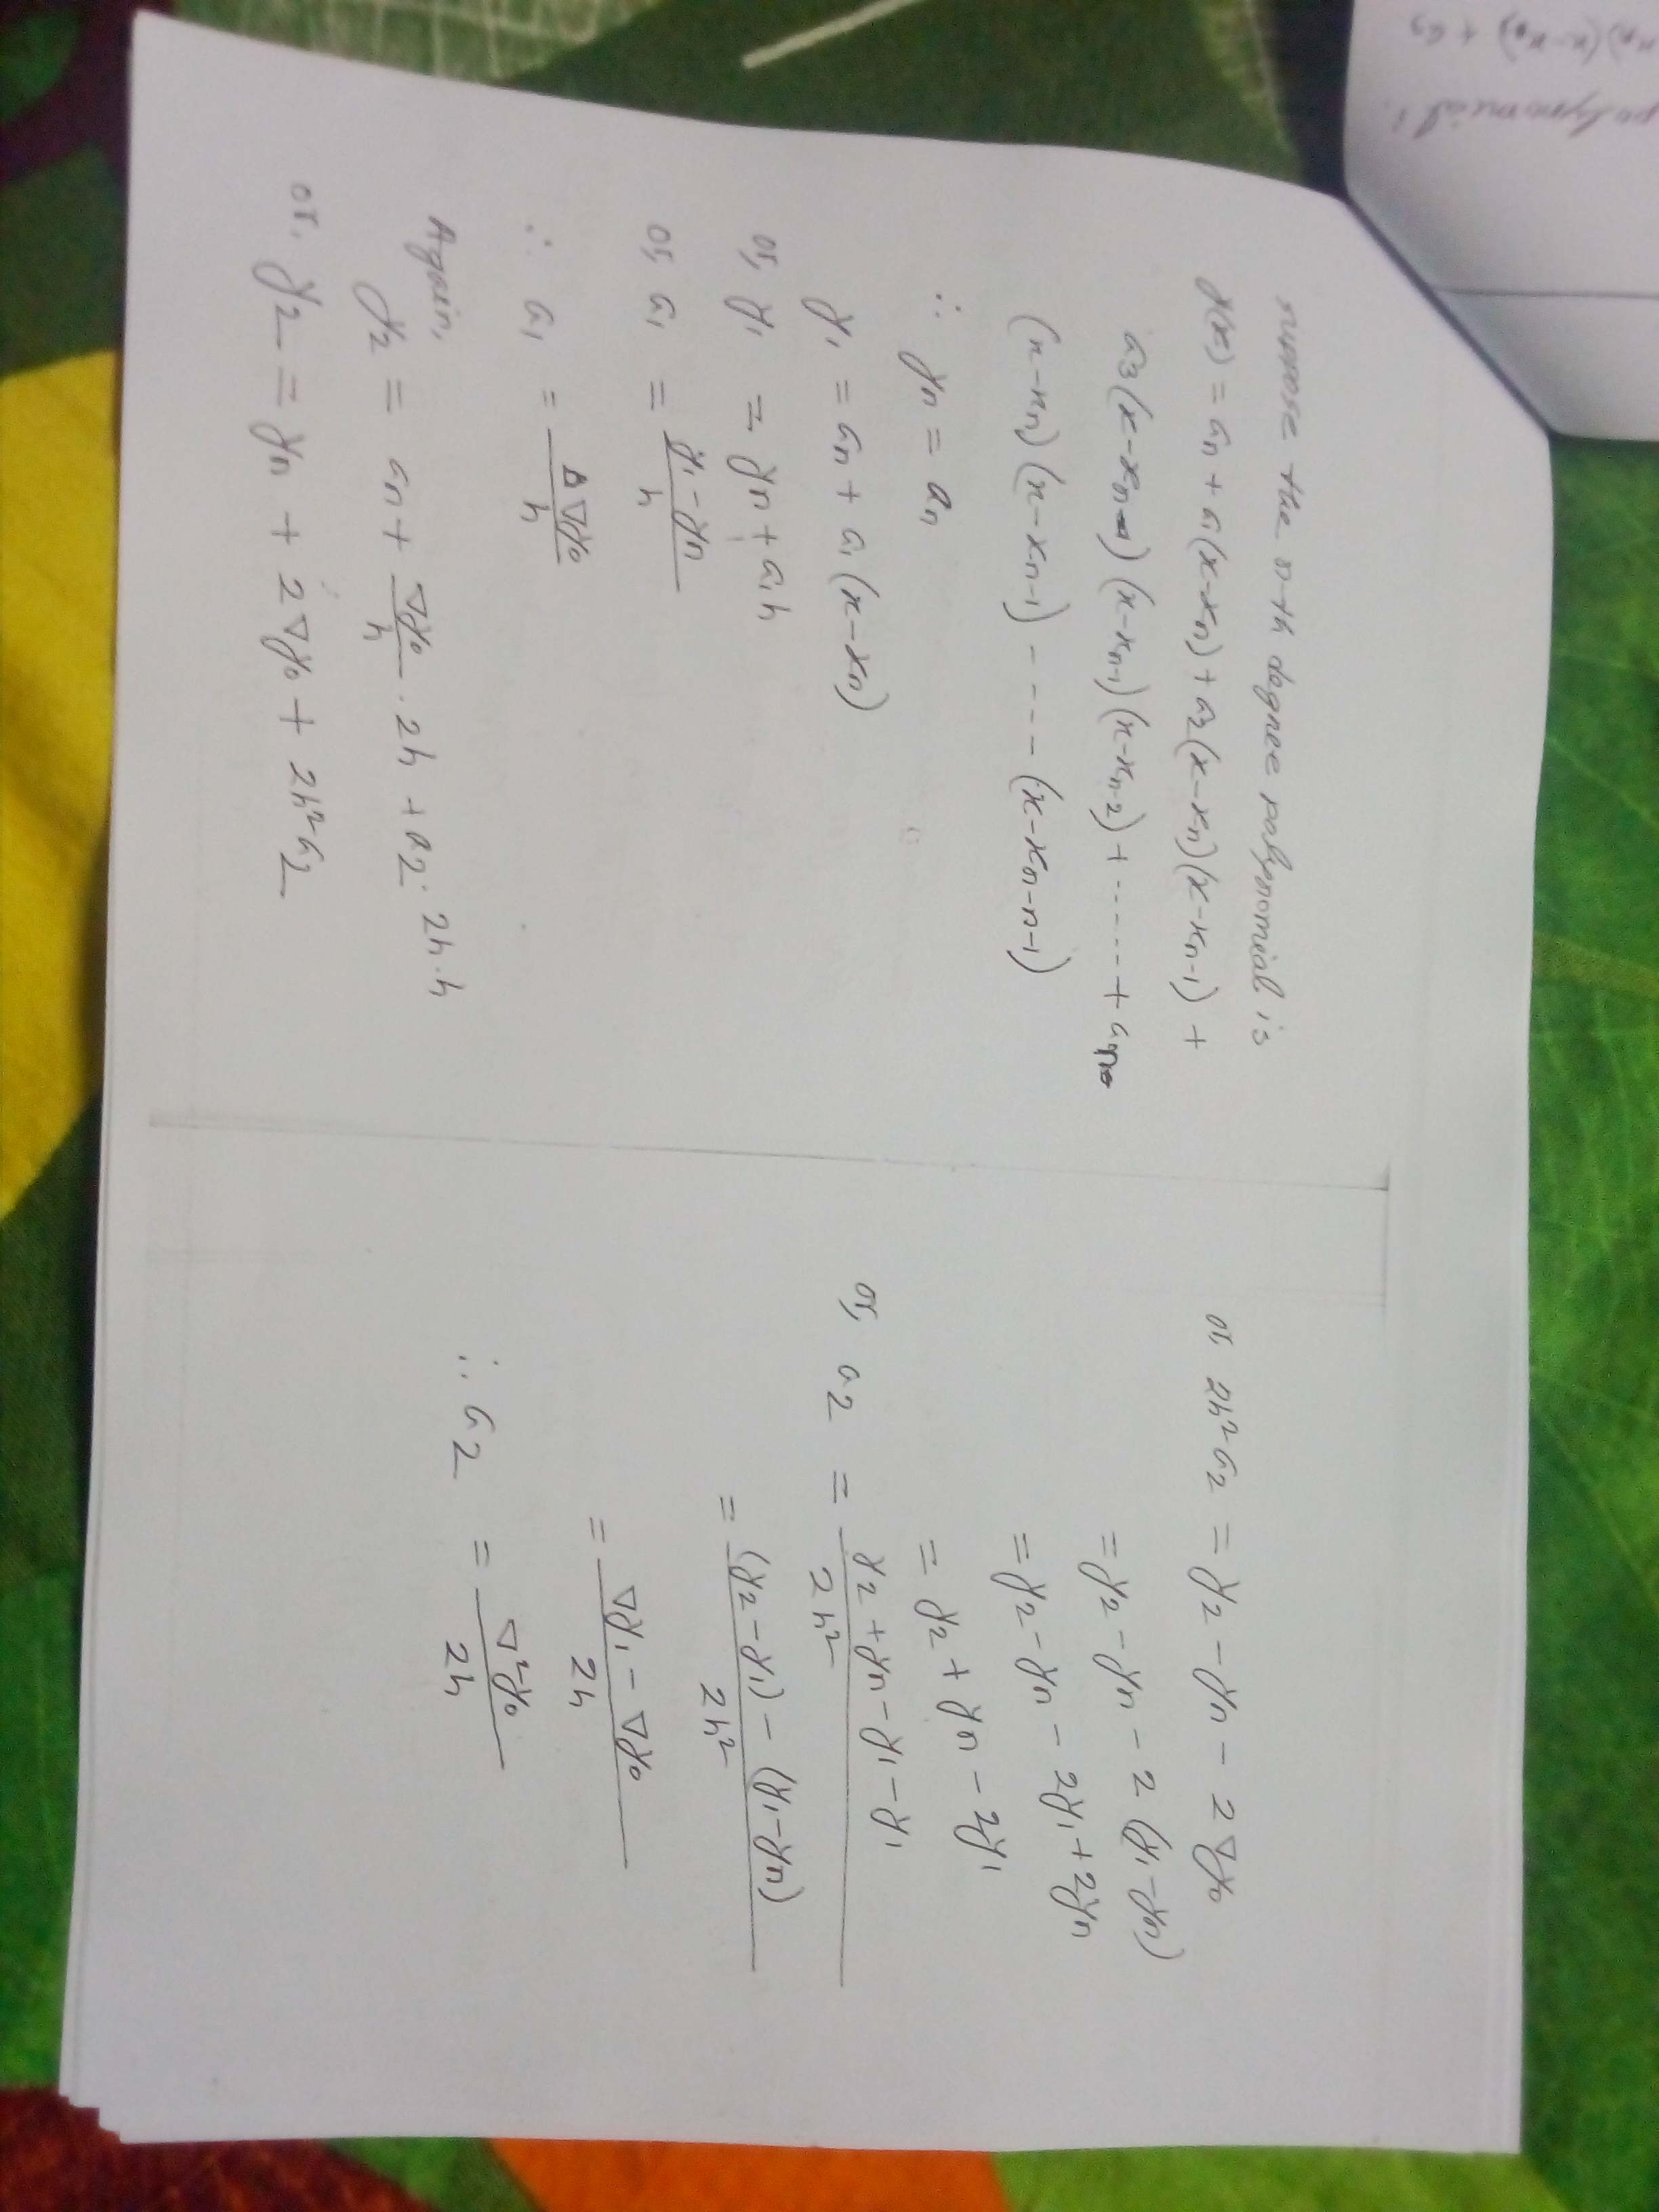 suppose the n-th degree polynomial is
y(x) = an + a1(x-xn) + a2(x-xn)(x-xn-1) +
a3(x-xn)(x-xn-1)(x-xn-2) + ...... + an
(x-xn)(x-xn-1) - - - - (x-xn-n-1)
∴ yn = an
y1 = an + a1(x-xn)
or, y1 = yn + a1h
or, a1 = y1-yn/h
∴ a1 = ∇y0/h
Again,
y2 = an + ∇y0/h . 2h + a2. 2h.h
or. y2 = yn + 2∇y0 + 2h²a2
or 2h²a2 = y2 - yn - 2∇y0
= y2 - yn - 2(y1-yn)
= y2 - yn - 2y1 + 2yn
= y2 + yn - 2y1
or, a2 = y2+yn-y1-y1/2h²
= (y2-y1) - (y1-yn)/2h²
= ∇y1 - ∇y0/2h
∴ a2 = ∇²y0/2h
polynomial i.
xn)(x-xn) + a3